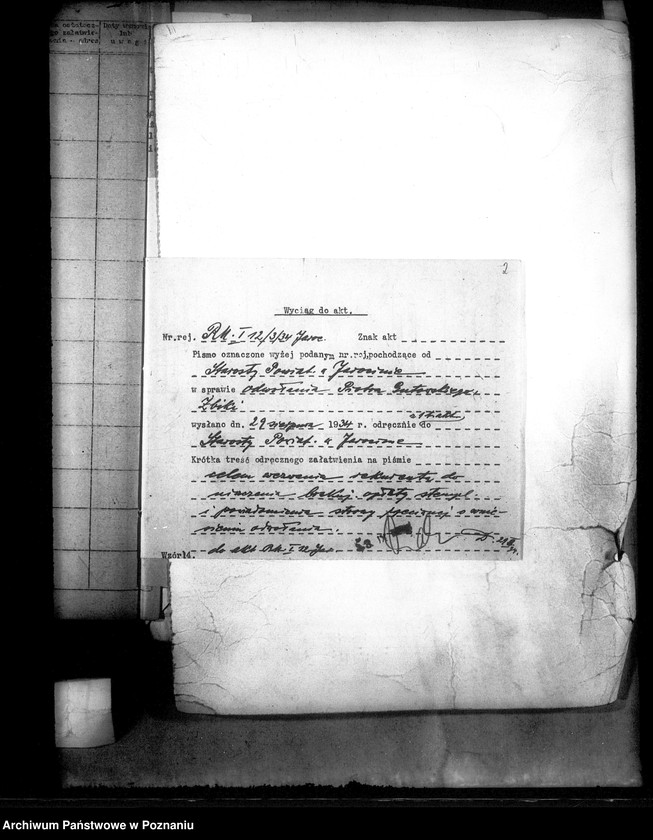 2
Wyciąg do akt.
Nr.rej. RM. I 12/3/34 Jaroc. Znak akt
Pismo oznaczone wyżej podanym nr.rej, pochodzące od
Starosty Powiat. w Jarocinie
w sprawie odwołania Piotra
Żbiki.
wysłano dn. 29 sierpnia 1934 r. odręcznie do
Starosty Powiat. w Jarocinie
Krótka treść odręcznego załatwienia na piśmie
celem wezwania rekurenta do
uiszczenia brakuj. opłaty stempl.
i powiadomienia strony o wnie-
sieniu odwołania.
Wzór 14. do akt RM. I 12 Jar.
Archiwum Państwowe w Poznaniu